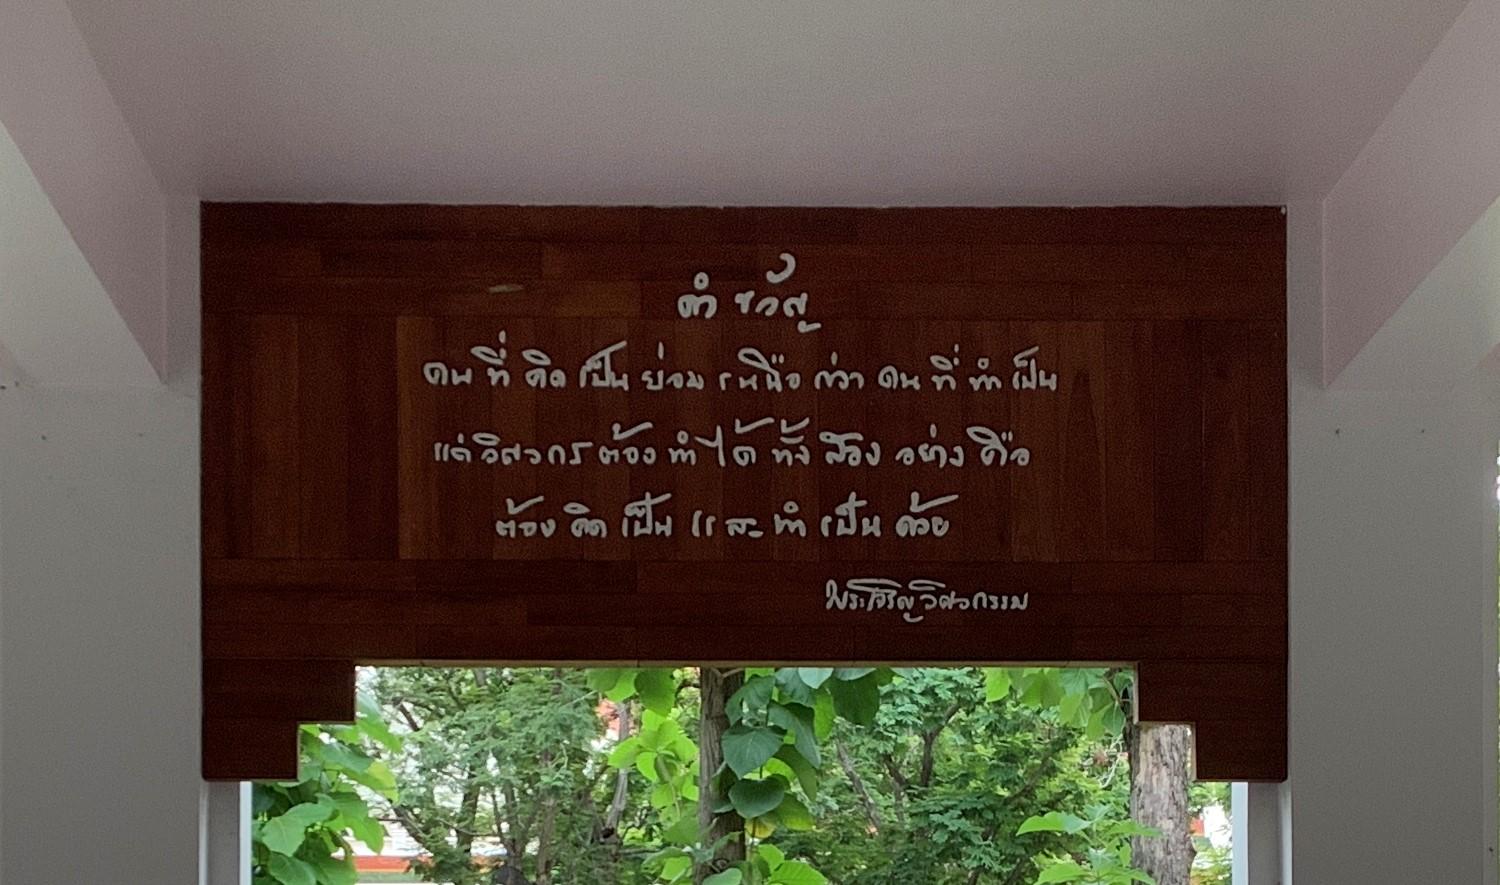 คำขวัญ
คนที่คิดเป็นย่อมเหนือกว่าคนที่ทำเป็น
แต่วิศวกรต้องทำได้ทั้งสองอย่างคือ
ต้องคิดเป็นและทำเป็นด้วย
พระเจริญวิศวกรรม